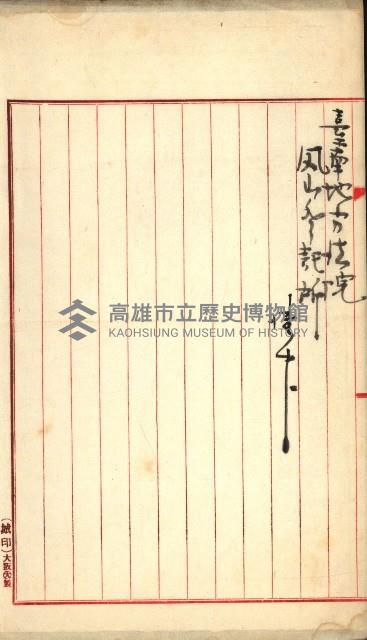 臺南地方法院
鳳山登記所
御中
高雄市立歷史博物館
KAOHSIUNG MUSEUM OF HISTORY
大阪